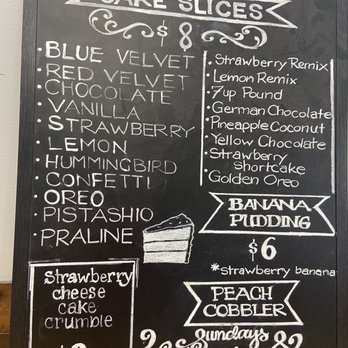 CAKE SLICES
$8
• BLUE VELVET
• RED VELVET
• CHOCOLATE
• VANILLA
• STRAWBERRY
• LEMON
• HUMMINGBIRD
• CONFETTI
• OREO
• PISTASHIO
• PRALINE
• Strawberry Remix
• Lemon Remix
• 7up Pound
• German Chocolate
• Pineapple Coconut
• Yellow Chocolate
• Strawberry
shortcake
• Golden Oreo
BANANA
PUDDING
$6
*strawberry banana
Strawberry
cheese
cake
crumble
PEACH
COBBLER
Sundays